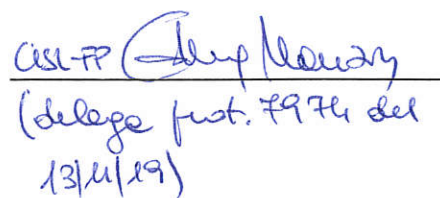 CISL-FP
(delega prot. 7974 del
13/11/19)